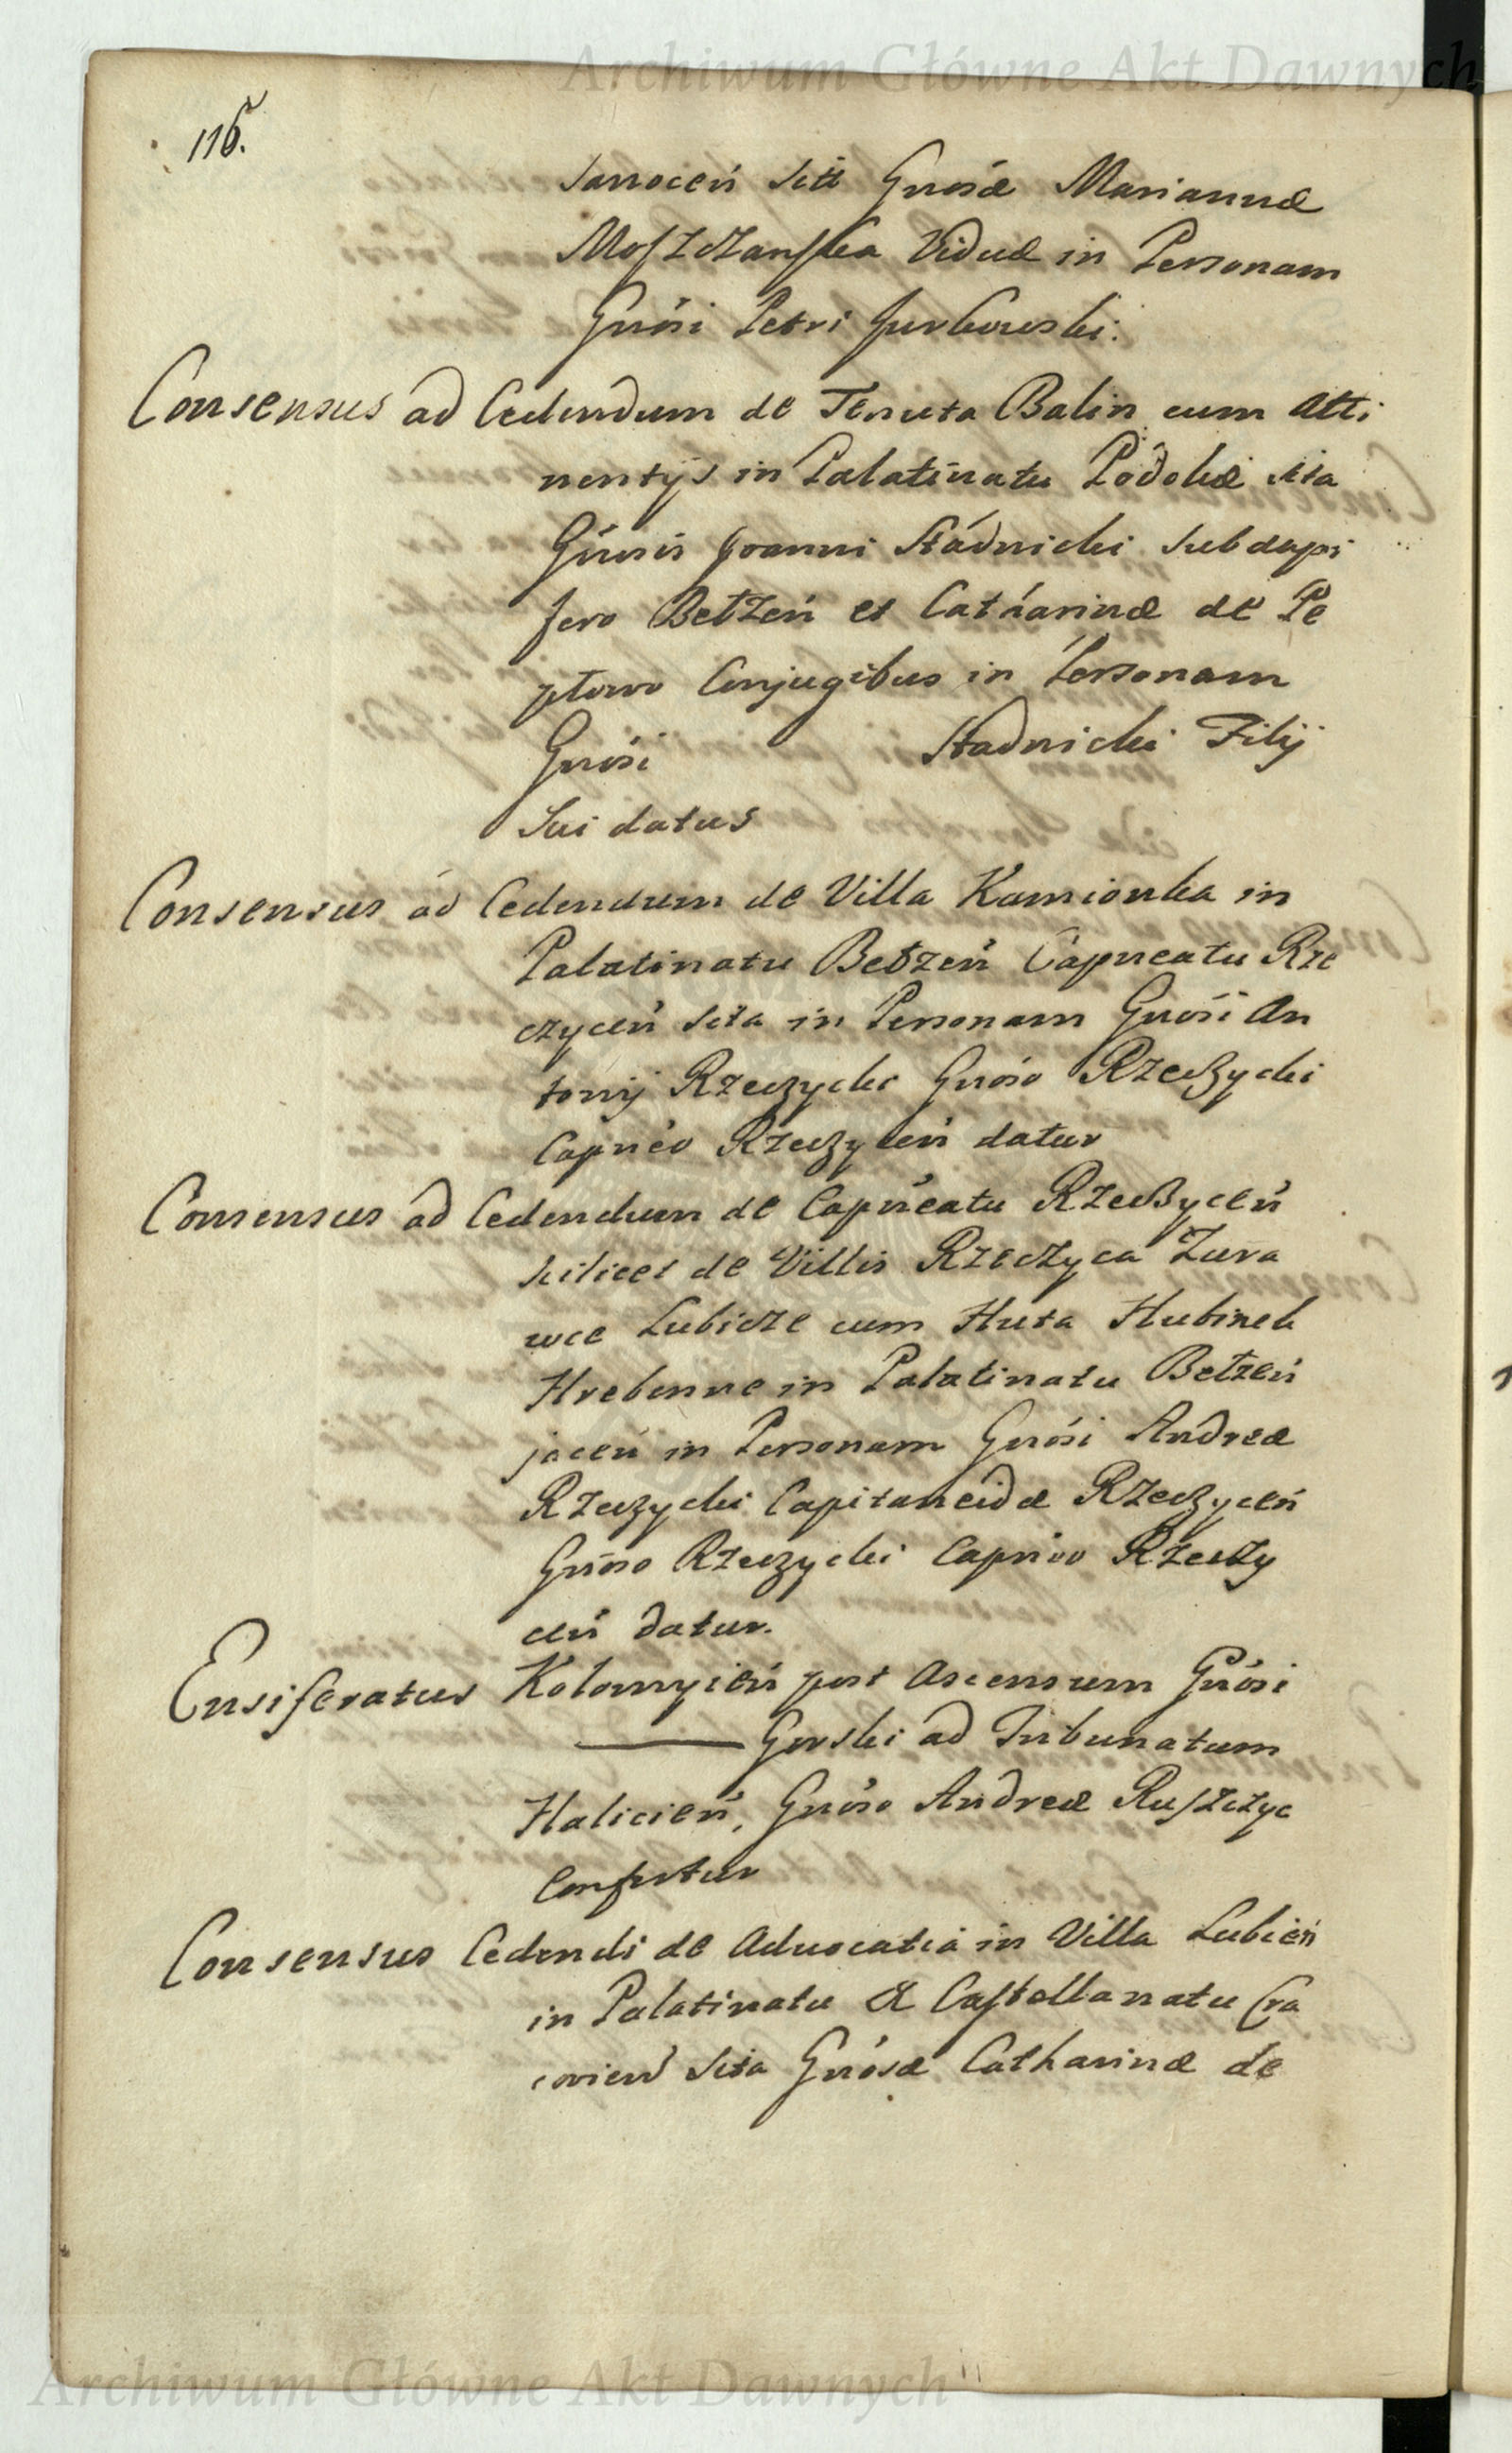 Archiwum Główne Akt Dawnych
116.
Sanoceń Sitt Gnosæ Mariannæ
Moszczanska Viduæ in Personam
Gnósi Petri Jurkowski.
Consensus ad Cedendum de Tenuta Balin cum Atti
nentijs in Palatinatu Podoliæ sita
Gnosis Joanni Stádnicki Subdapi
fero Bełzeń et Catharinæ de Pe
ptowo Conjugibus in Personam
Gnósi Stadnicki Filij
Sui datus
Consensus ad Cedendum de Villa Kamionka in
Palatinatu Bełzeń Capneatu Rze
czyceń Sita in Personam Gnósi An
tonij Rzeczycki Gnóso Rzeczycki
Capnéo Rzeczyceń datur
Consensus ad Cedendum de Capneatu Rzeczyceń
scilicet de Villis Rzeczyca Zura
wce Lubicze cum Huta Hubinek
Hrebenne in Palatinatu Bełzeń
jaceń in Personam Gnósi Andreæ
Rzeczycki Capitaneidæ Rzeczyceń
Gnóso Rzeczycki Capnéo Rzeczy
ceń datur.
Ensiferatus Kolomyień post Ascensum Gnósi
Gorski ad Tribunatum
Halicień, Gnóso Andreæ Ruszczyc
Confertur
Consensus Cedendi de Advocatia in Villa Lubień
in Palatinatu & Castellanatu Cra
covień Sita Gnósæ Catharinæ de
Archiwum Główne Akt Dawnych